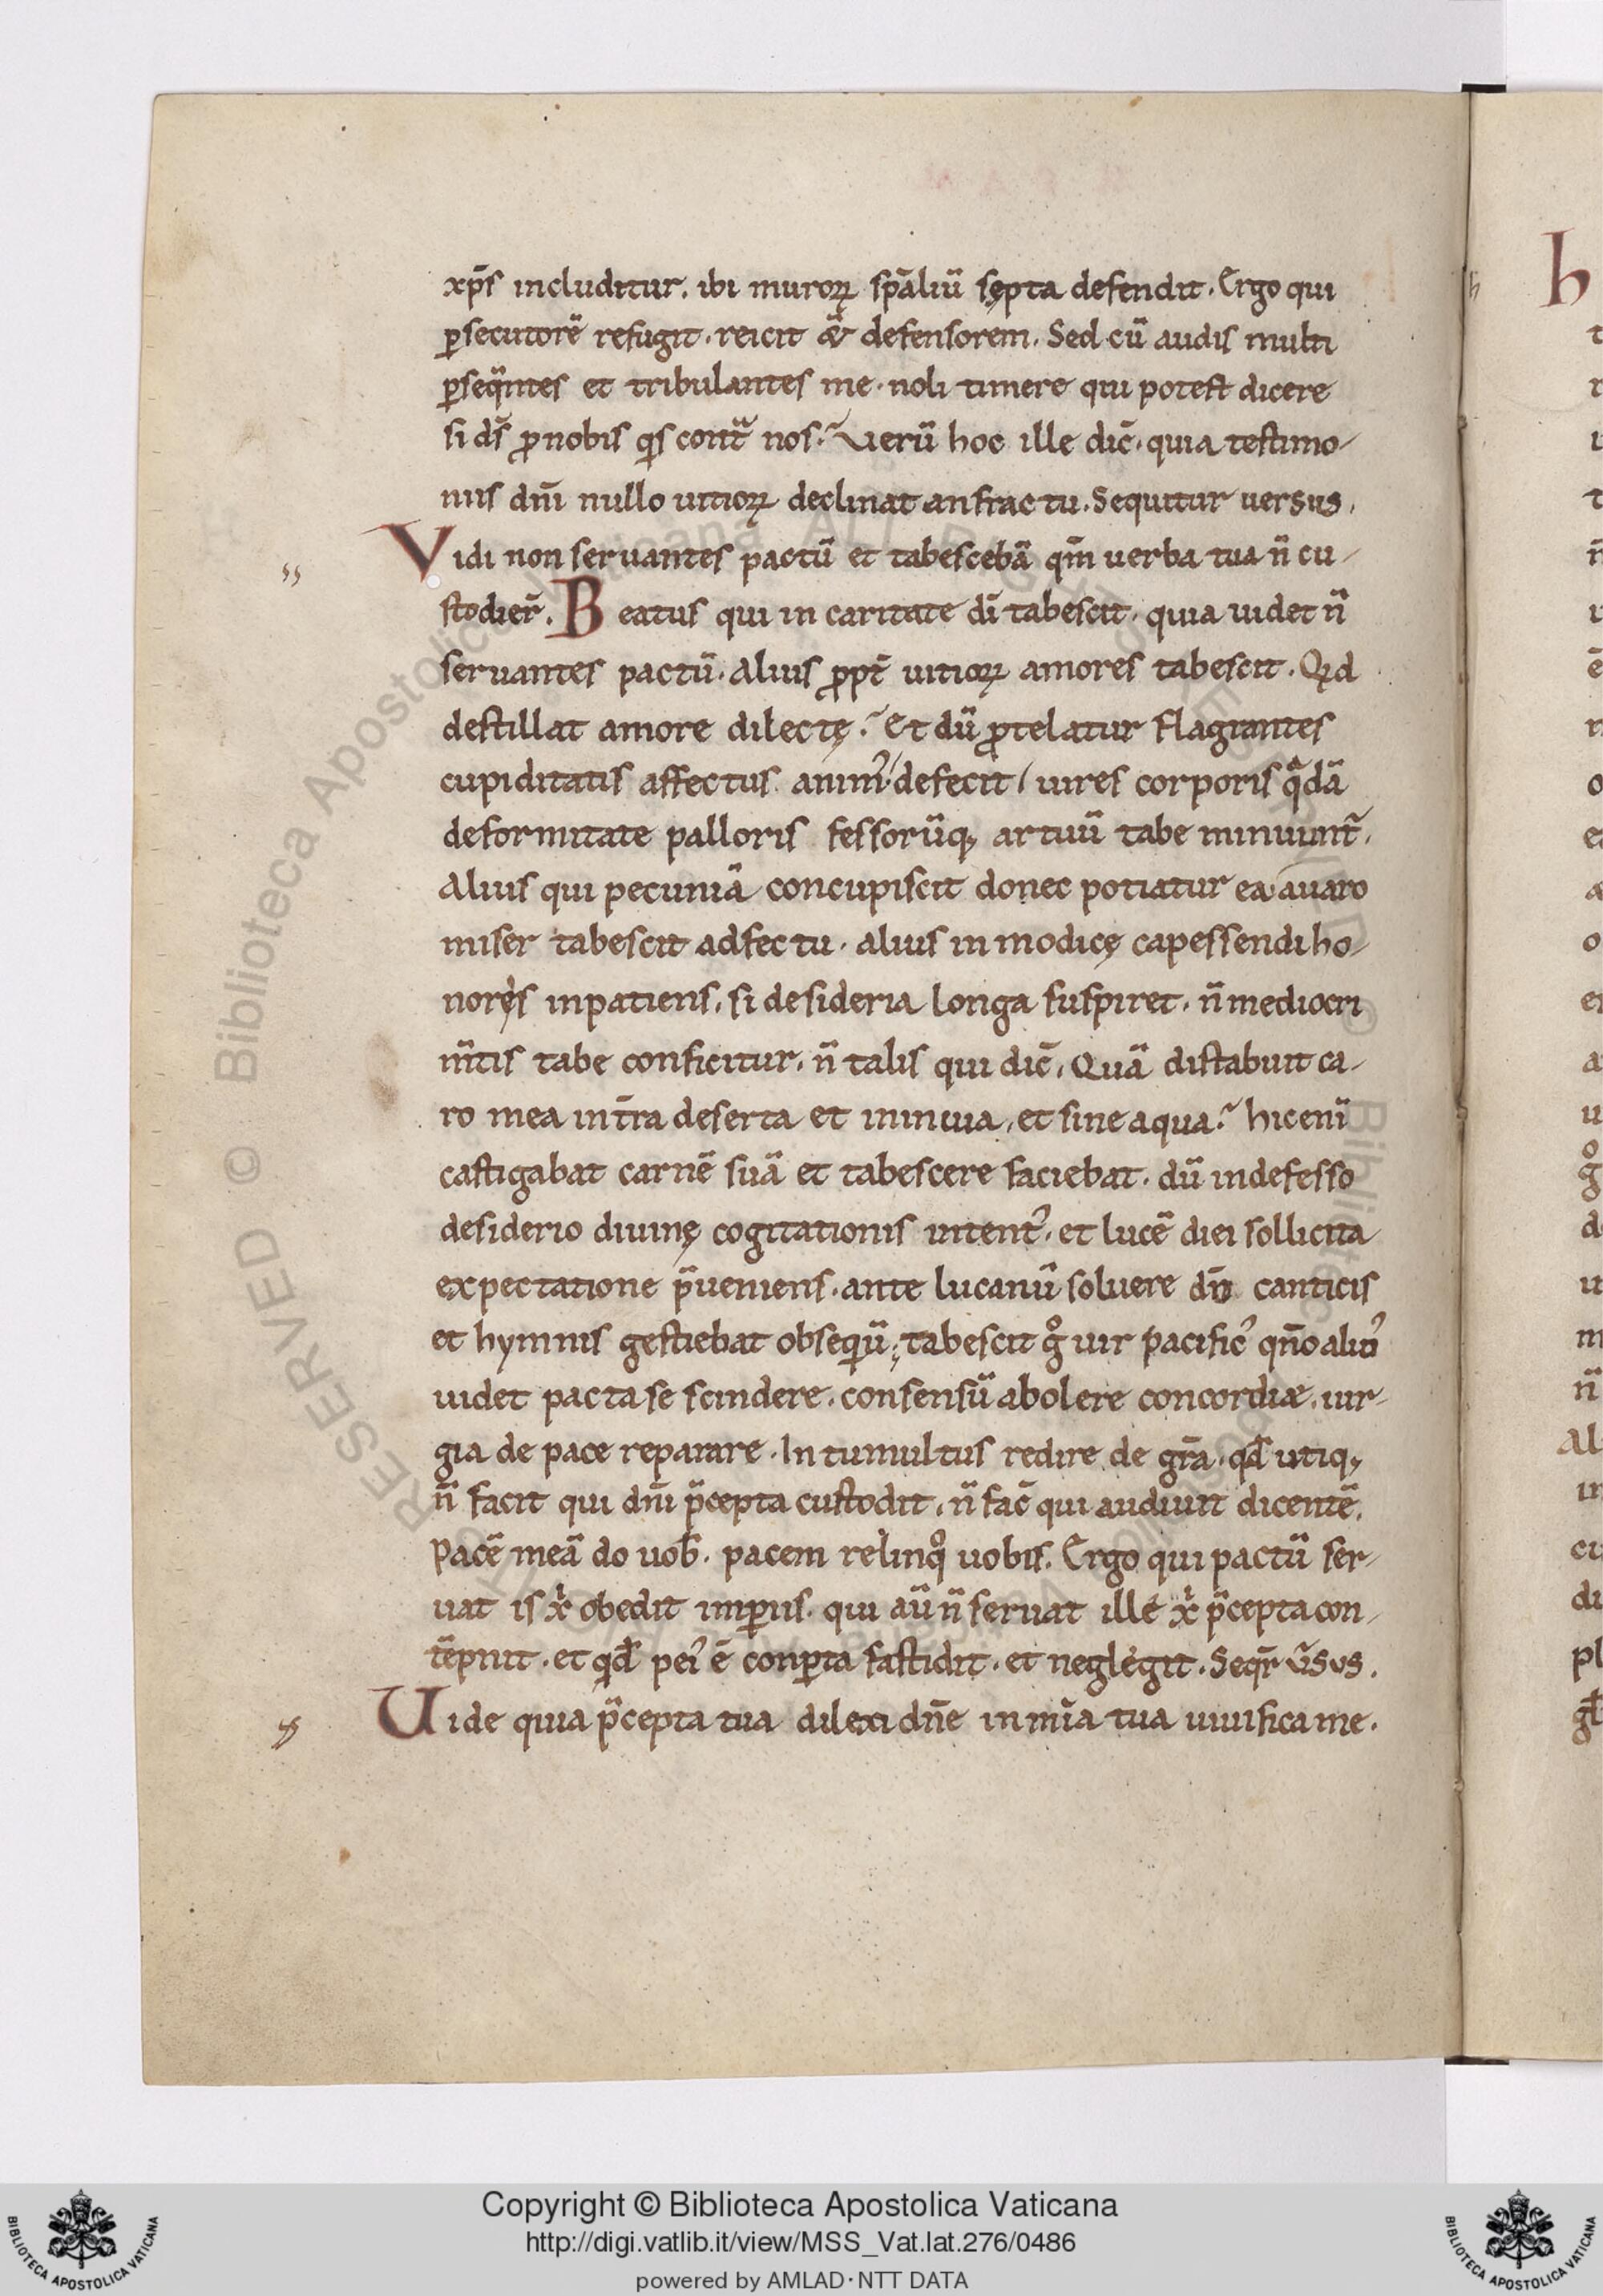 xp̄s includitur. ibi muroꝝ sp̄aliū sępta defendit. Ergo qui
ꝑsecutorē refugit. reicit & defensorem. Sed cū audis multi
ꝑseqūntes et tribulantes me. noli timere qui potest dicere
si dś ꝓ nobis qͥs contͣ nos? Verū hoc ille dic̄. quia testimo-
niis dnī nullo uitioꝝ declinat anfractu. Sequitur uersus.
Vidi non seruantes pactū et tabescebā qm̄ uerba tua n̄ cu-
stodier̄. Beatus qui in caritate dī tabescit. quia uidet n̄
seruantes pactū. Alius ꝓpt̄ uitioꝝ amores tabescit. Qͥd
destillat amore dilectę? Et dū ꝓtelatur flagrantes
cupiditatis affectus animꝰ defecit uires corporis qͣdā
deformitate palloris fessorūq; artuū tabe minuunt᷑.
Alius qui pecuniā concupiscit donec potiatur ea auaro
miser tabescit adfectu. alius inmodicę capessendi ho-
noręs inpatiens. si desideria longa suspiret. n̄ mediocri
m̄tis tabe conficitur. n̄ talis qui dic̄. Quā distabuit ca-
ro mea in t̄ra deserta et inuiua. et sine aqua? hic enī
castigabat carnē suā et tabescere faciebat. dū indefesso
desiderio diuinę cogitationis intentꝰ. et lucē diei sollicita
expectatione p̄ueniens. ante lucanū soluere dn̄o canticis
et hymnis gestiebat obsequiū; tabescit gͦ uir pacificꝰ qn̄o aliꝰ
uidet pacta se scindere. consensū abolere concordiæ. iur-
gia de pace reparare. In tumultus redire de gr̄a. qđ utiq;
n̄ facit qui dnī p̄cepta custodit. n̄ fac̄ qui audiuit dicentē.
Pacē meā do uob̄. pacem relinqͦ uobis. Ergo qui pactū ser-
uat is xͥ obedit imꝑiis. qui aū n̄ seruat ille xͥ p̄cepta con-
tēpnit. et qđ peiꝰ ē conꝑta fastidit. et neglegit. Seqr̄ ūsus.
Uide quia p̄cepta tua dilexi dn̄e in mīa tua uiuifica me.
Copyright © Biblioteca Apostolica Vaticana
http://digi.vatlib.it/view/MSS_Vat.lat.276/0486
powered by AMLAD·NTT DATA